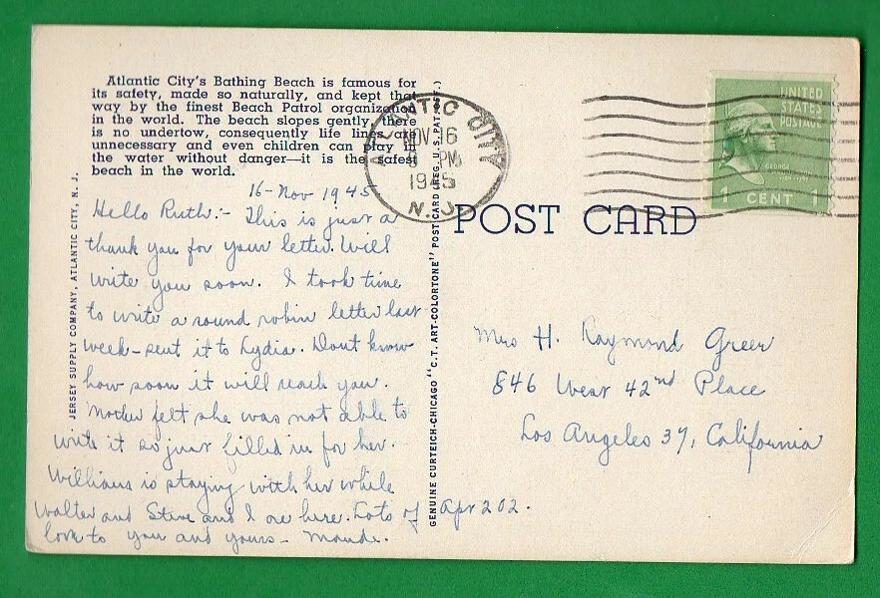 Atlantic City's Bathing Beach is famous for
its safety, made so naturally, and kept that
way by the finest Beach Patrol organization
in the world. The beach slopes gently, there
is no undertow, consequently life lines are
unnecessary and even children can play in
the water without danger—it is the safest
beach in the world.
16-Nov 1945
Hello Ruth:- This is just a
thank you for your letter. Will
write you soon. I took time
to write a round robin letter last
week-sent it to Lydia. Dont know
how soon it will reach you.
Mother felt she was not able to
write it so just filled in for her.
Williams is staying with her while
Walter and Steve and I are here. Lots of
love to you and yours- Maude.
JERSEY SUPPLY COMPANY, ATLANTIC CITY, N. J.
GENUINE CURTEICH-CHICAGO "C.T. ART-COLORTONE" POST CARD (REG. U.S. PAT. OFF.)
ATLANTIC CITY
NOV 16
PM
1945
N.J.
UNITED
STATES
POSTAGE
GEORGE
WASHINGTON
1 CENT 1
POST CARD
Mrs H. Raymond Greer
846 West 42nd Place
Los Angeles 37, California
Apr 202.